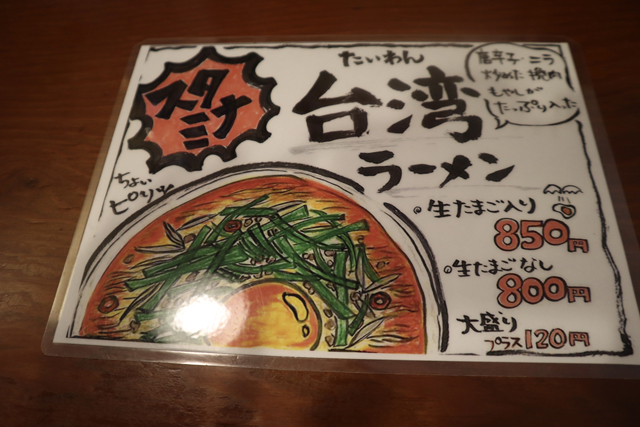 スタ
ミナ
たいわん
台湾
ラーメン
唐辛子・ニラ
炒めた挽肉
もやしが
たっぷり入った
ちょい
ピリッ
生たまご入り
850円
生たまごなし
800円
大盛り
プラス120円